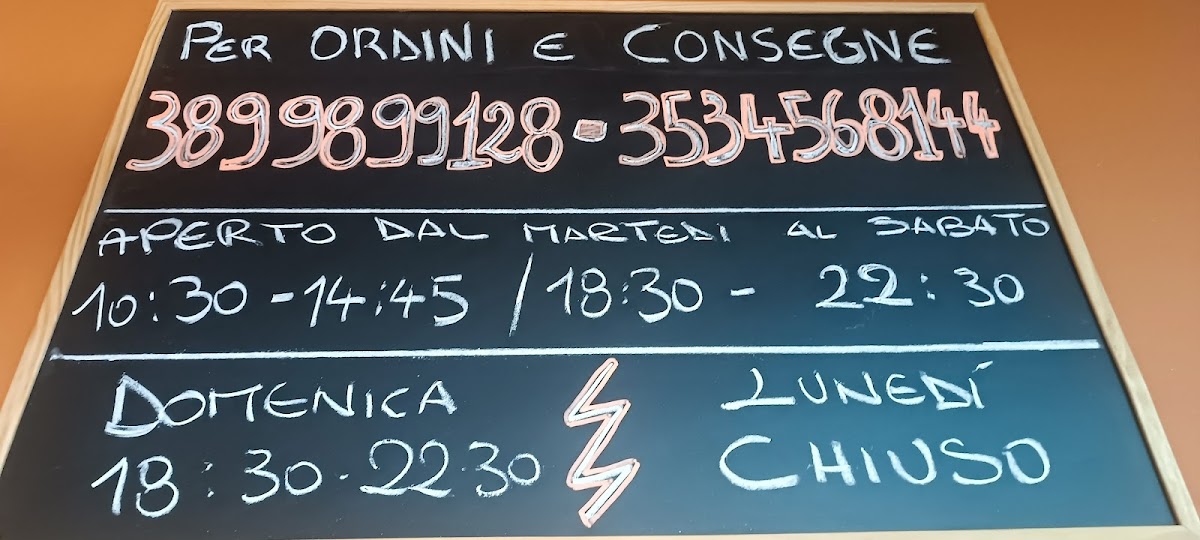 PER ORDINI E CONSEGNE
3899899128 - 3534568144
APERTO DAL MARTEDI AL SABATO
10:30 - 14:45 / 18:30 - 22:30
DOMENICA
18:30 - 22 30
LUNEDÍ
CHIUSO